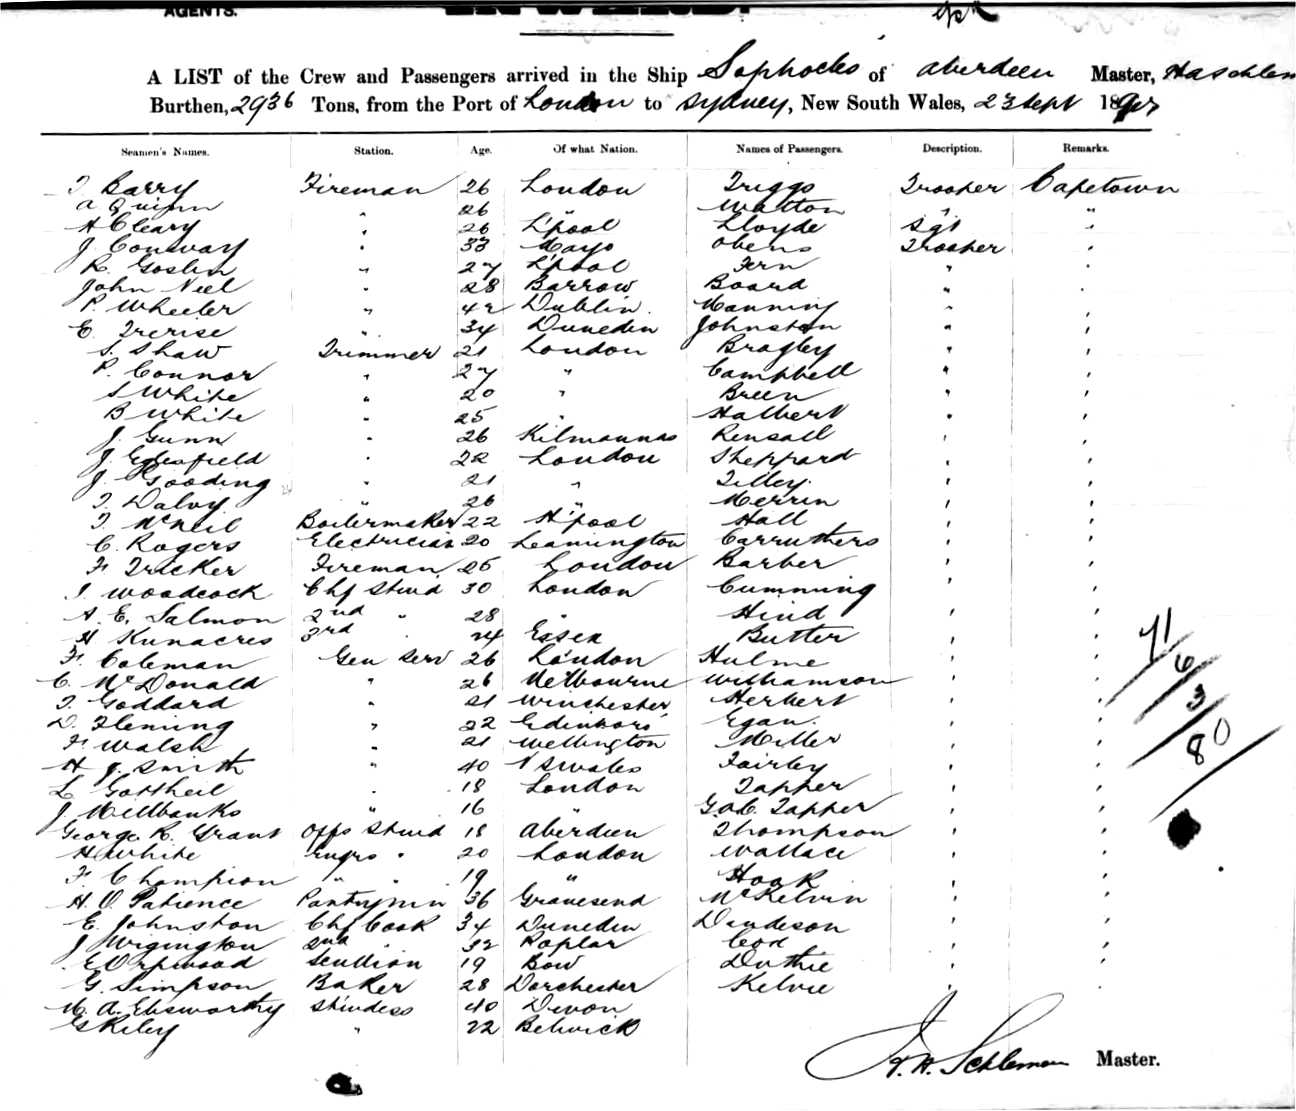 AGENTS.
A LIST of the Crew and Passengers arrived in the Ship Sophocles of Aberdeen Master,
Burthen, 2936 Tons, from the Port of London to Sydney, New South Wales, 23 Sept 18
Seamen's Names. Station. Age. Of what Nation. Names of Passengers. Description. Remarks.
T Barry Fireman 26 London Triggs Trooper Capetown
A Quinn " 26 " Watton " "
H Cleary " 26 L'pool Lloyde Sgt "
J Conway " 33 Mayo Obens Trooper "
R. Goslin " 27 L'pool Fern " "
John Neel " 28 Barrow Board " "
P. Wheeler " 42 Dublin. Manning " "
E. Trerise " 34 Dunedin Johnston " "
S. Shaw Trimmer 21 London Bragley " "
P. Connor " 27 " Campbell " "
S White " 20 " Breen " "
B White " 25 " Halbert " "
J. Gunn " 26 Rensall " "
J. " 22 London Sheppard " "
J. Gooding " 21 " Tilley. " "
T. Dalvy " 26 " Merrin " "
T. McNeil Boilermaker 22 H'pool Hall " "
C. Rogers Electrician 20 Leamington Carruthers " "
F Tricker Fireman 25 London Barber " "
J. Woodcock Chf Stwd 30 London Cumming " "
A. E. Salmon 2nd " 28 " Hind " "
H Kunacres 3rd " 24 Essex Butter " "
F. Coleman Gen Serv 26 London Hulme " "
C. McDonald " 26 Melbourne Williamson " "
T. Goddard " 21 Winchester Herbert " "
D. Fleming " 22 Edinboro' Egan. " "
F. Walsh " 21 Wellington Miller " "
H J. Smith " 40 N S Wales Fairley " "
L. Gottheil " 18 London Tapper " "
J. Millbanks " 16 " G. A. C. Tapper " "
George R. Grant Offs Stwd 18 Aberdeen Thompson " "
H White Engrs " 20 London Wallace " "
F. Champion " " 19 " Hook " "
H. O. Patience Pantrymn 36 Gravesend McKelvin " "
E. Johnston Chf Cook 34 Dunedin Davideson " "
J Wigington 2nd " 32 Poplar Cox " "
E Orpwood Scullion 19 Bow Duthie " "
G. Simpson Baker 28 Dorchester Kelvie " "
M. A. Ebsworthy Stwdess 40 Devon
G Riley " 22
71
6
3
80
Schleman Master.